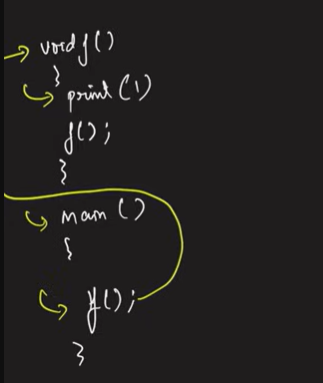 void f()
}
print(1)
f();
}
main()
{
f();
}